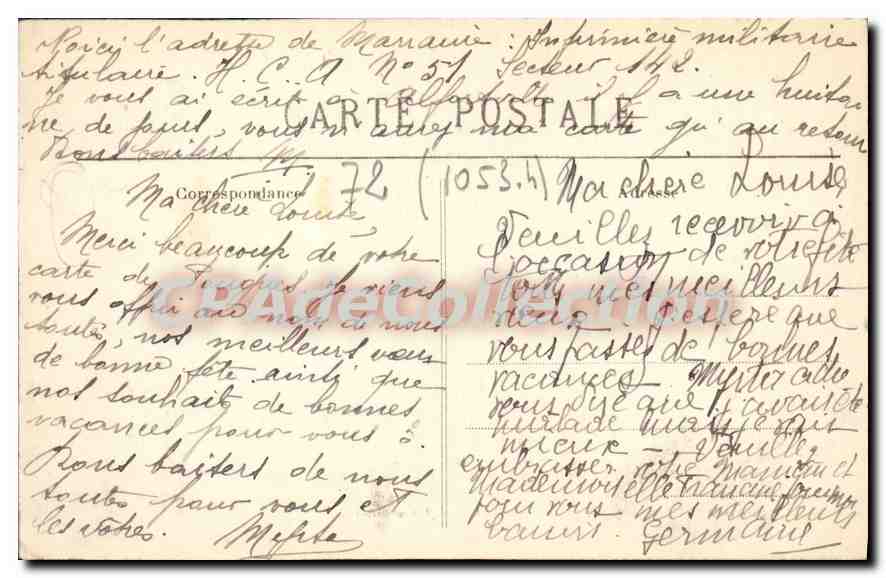 Voici l'adresse de Marraine : Infirmière militaire
titulaire. H. C. A N° 51 Secteur 142.
Je vous ai écrit à il y a une huitai
ne de jours, vous n'aurez ma carte qu'au retour
Bons baisers
CARTE POSTALE
Correspondance
Adresse
72 (1053.h)
Ma chère Louise
Merci beaucoup de votre
carte de Je viens
vous offrir au nom de nous
toutes, nos meilleurs vœux
de bonne fête ainsi que
nos souhaits de bonnes
vacances pour vous 3.
Bons baisers de nous
toutes pour vous et
les vôtres.
Ma chère Louise,
Veuillez recevoir à
l'occasion de votre fête
mes meilleurs
vœux. J'espère que
vous passez de bonnes
vacances. a du
vous dire que j'avais été
malade mais je vais
mieux — Veuillez
embrasser votre Maman et
Mademoiselle
pour vous mes meilleurs
baisers. Germaine
CPAdeCollection